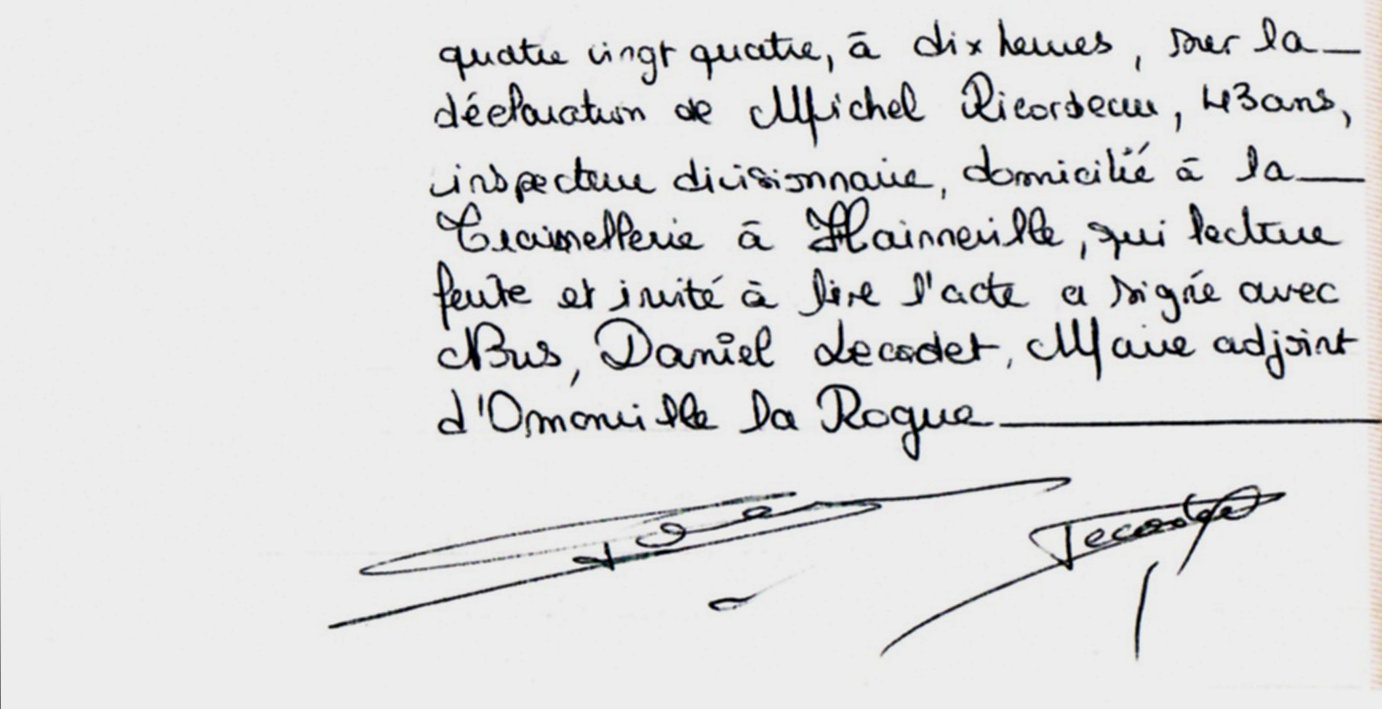 quatre vingt quatre, à dix heures, sur la
déclaration de Michel Ricordeau, 43 ans,
inspecteur divisionnaire, domicilié à la
à Hainneville, qui lecture
faite et invité à lire l'acte a signé avec
Nous, Daniel Lecostet, Maire adjoint
d'Omonville la Rogue